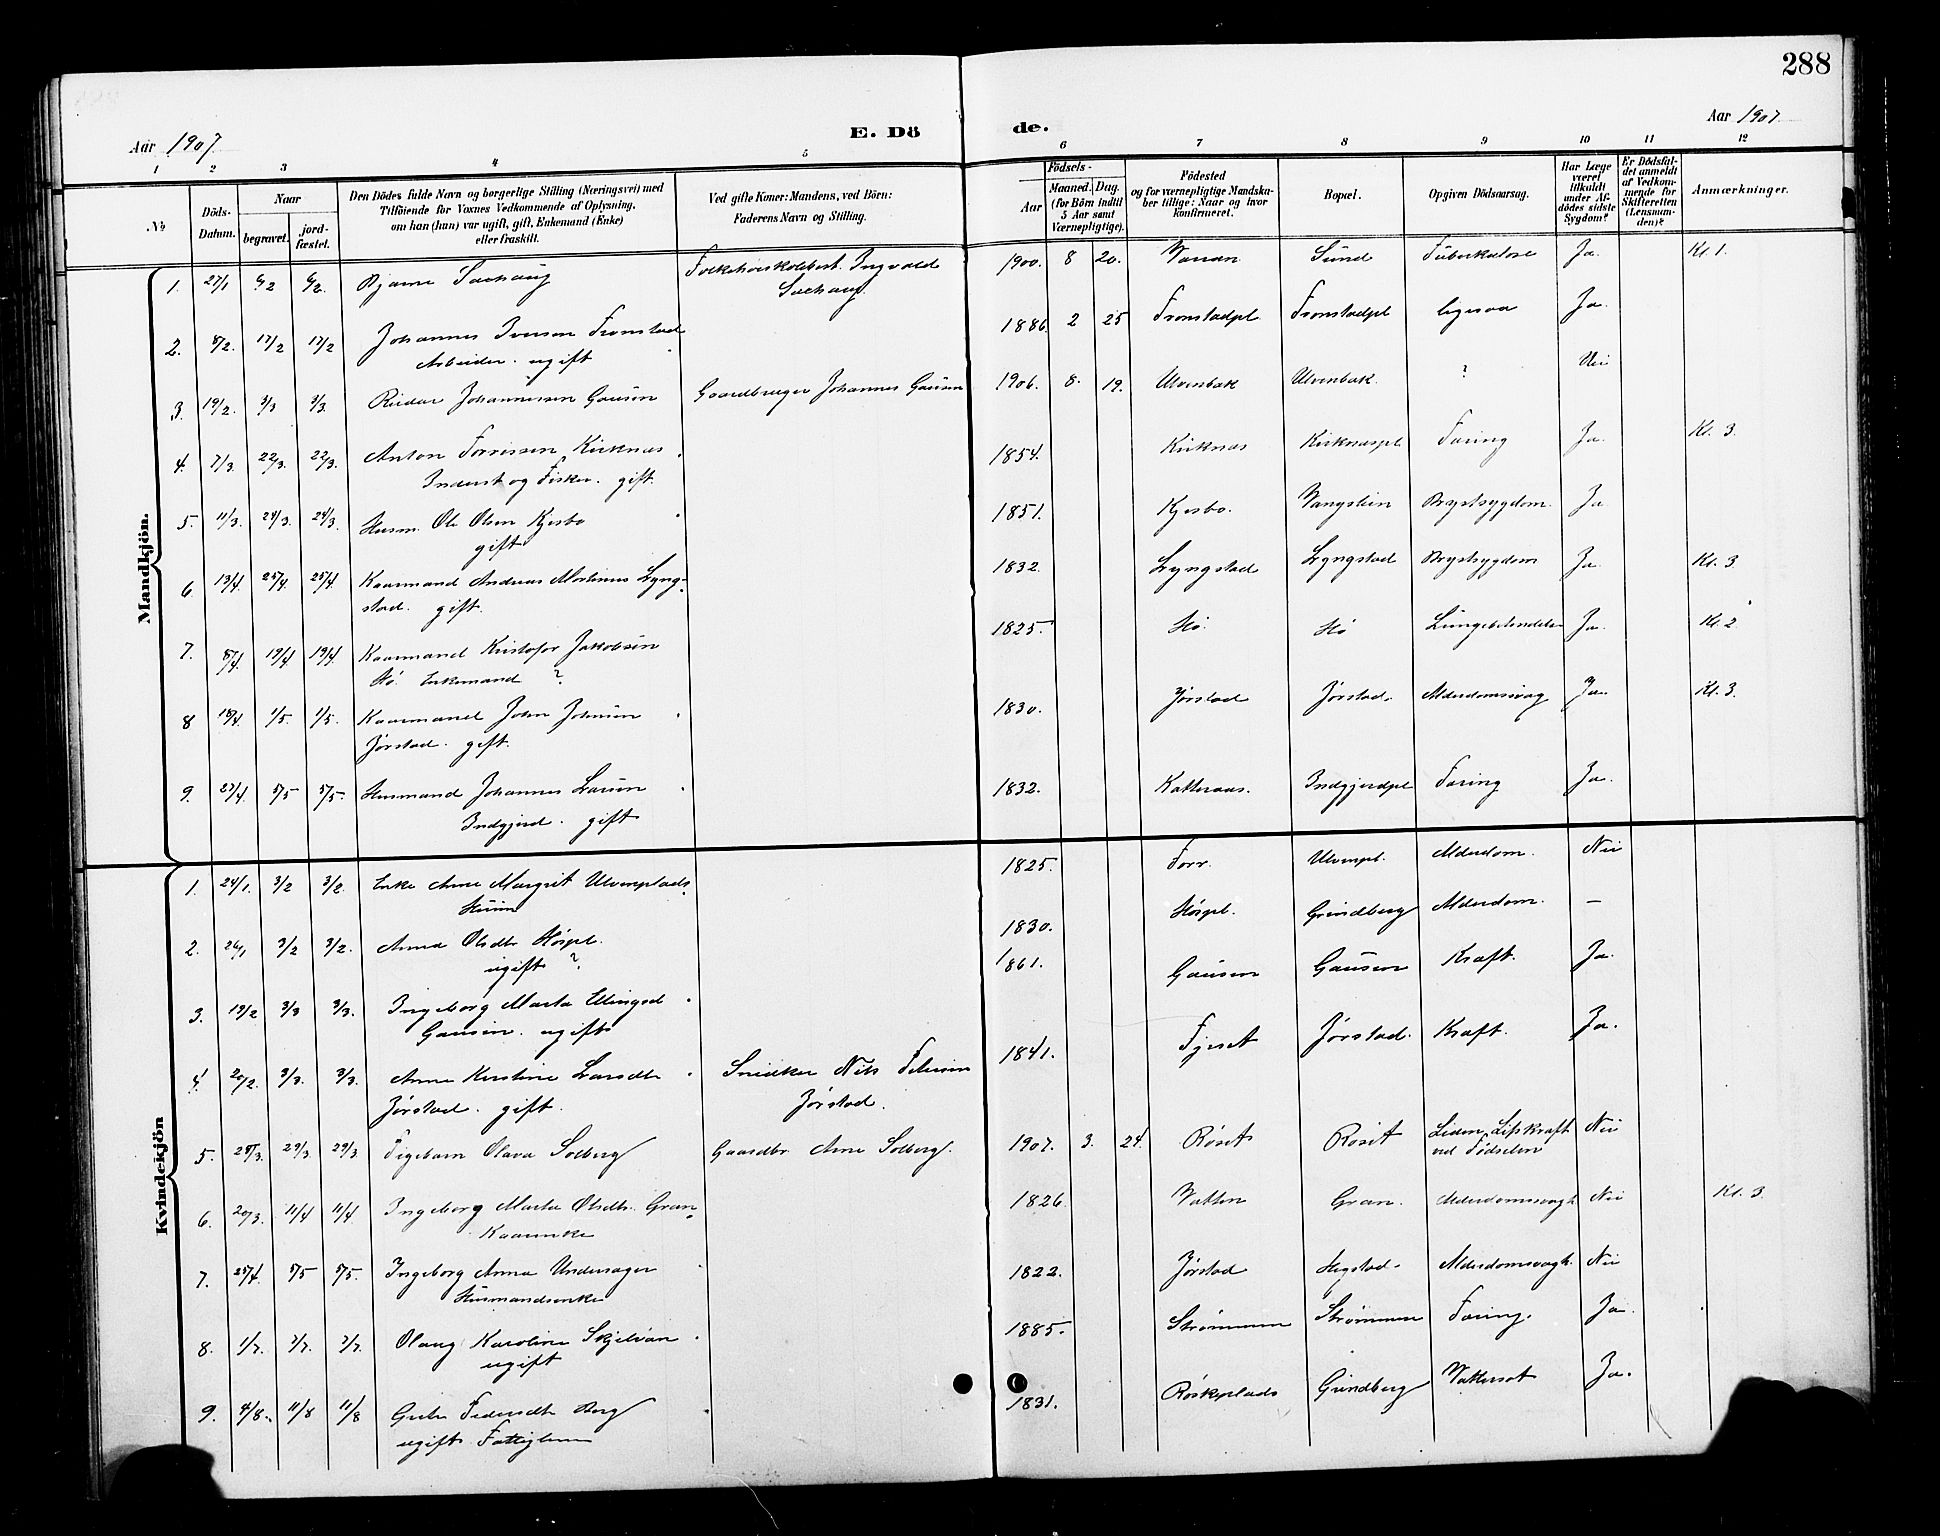 288
Aar 1907.
E. Dö
de.
Aar 1907.
1 2 3 4 5 6 7 8 9 10 11 12
№
Döds-
Datum.
Naar
begravet.
jord-
fæstet.
Den Dödes fulde Navn og borgerlige Stilling (Næringsvei) med
Tilföiende for Voxnes Vedkommende af Oplysning,
om han (hun) var ugift, gift, Enkemand (Enke)
eller fraskilt.
Ved gifte Koner: Mandens, ved Börn:
Faderens Navn og Stilling.
Födsels-
Aar
Maaned.
Dag.
(for Börn indtil
5 Aar samt
Værnepligtige).
Födested
og for værnepligtige Mandska-
ber tillige: Naar og hvor
konfirmeret.
Bopæl.
Opgiven Dödsaarsag.
Har Læge
været
tilkaldt
under Af-
dödes sidste
Sygdom?
Er Dödsfal-
det anmeldt
af Vedkom-
mende for
Skifteretten
(Lensman-
den)?
Anmærkninger.
Mandkjön.
1. 27/1 6/2 6/2. Bjarne Sæhaug Ingvald 1900. 8 20. Sund Tuberkulose Ja. Kl. 1.
Sæhaug.
2. 8/2. 17/2 17/2 Johannes Iversen Tronstad 1886. 2 25 Tronstadpl. Tronstadpl ligesaa Ja.
Arbeider. ugift
3. 19/2. 3/3 3/3. Reidar Johannessen Gausen Gaardbruger Johannes Gausen 1906. 8. 19. Ulvenbak Ulvenbak. ? Nei
4. 7/3. 22/3. 22/3. Anton Kirknæs 1854. Kirknæs Kirknæspl. Tæring Ja. Kl. 3.
Inderst og Fisker. gift.
5. 11/3. 24/3. 24/3. Husm. Ole Olsen Kjesbo 1851. Kjesbo. Brystsygdom. Ja
gift
6. 13/4. 25/4. 25/4. Kaarmand Andreas Martinus Lyng- 1832. Lyngstad Lyngstad Brystsygdom Ja. Kl. 3.
stad. gift.
7. 8/4. 19/4 19/4. Kaarmand Kristofer Jakobsen 1825. Hø. Hø Lungebetændelse Ja. Kl. 2
Hø. Enkemand ?
8 18/4. 1/5. 1/5. Kaarmand John Johnsen 1830. Jørstad Jørstad. Alderdomssvag Ja. Kl. 3.
Jørstad. gift.
9. 27/4. 5/5 5/5. Husmand Johannes Larsen 1832. Katteraas. Indgjerdpl Tæring Ja.
Indgjerd. gift
Kvindekjön
1. 24/1. 3/2 3/2. Enke Anne Margrit Ulvenplads 1825. Forr. Ulvenpl. Alderdom. Nei
2. 26/1 3/2 3/2. Anna Olsdtr Høspl. 1830. Høspl. Grindberg Alderdom. —
ugift ?
3. 19/2 3/3 3/3. Ingeborg Marta Ellingsd 1861. Gausen Gausen Kræft. Ja.
Gausen. ugift
4. 20/2. 3/3. 3/3. Anne Kirstine Larsdtr Snidker Nils Petersen 1841. Jørstad. Kræft. Ja.
Jørstad. gift. Jørstad.
5. 25/3. 29/3. 29/3 Pigebarn Olava Solberg Gaardbr. Arne Solberg. 1907. 3. 24. Røset Røset Liden Livskraft Nei
ved Fødselen
6. 20/3. 11/4 11/4. Ingeborg Marta Olsdtr. Gran 1826. Vatten Gran. Alderdomssvagh Nei Kl. 3.
Kaarenke
7. 25/4. 5/5 5/5. Ingeborg Anna Undersager 1822. Jørstad Hegstad. Alderdomssvagh. Nei
Husmandsenke
8. 1/7. 7/7. 7/7. Olaug Karoline Skjelvan 1885. Strømmen Strømmen Tæring. Ja.
ugift
9. 4/8. 11/8 11/8 Berg 1831. Grindberg Vattersot Ja.
ugift.